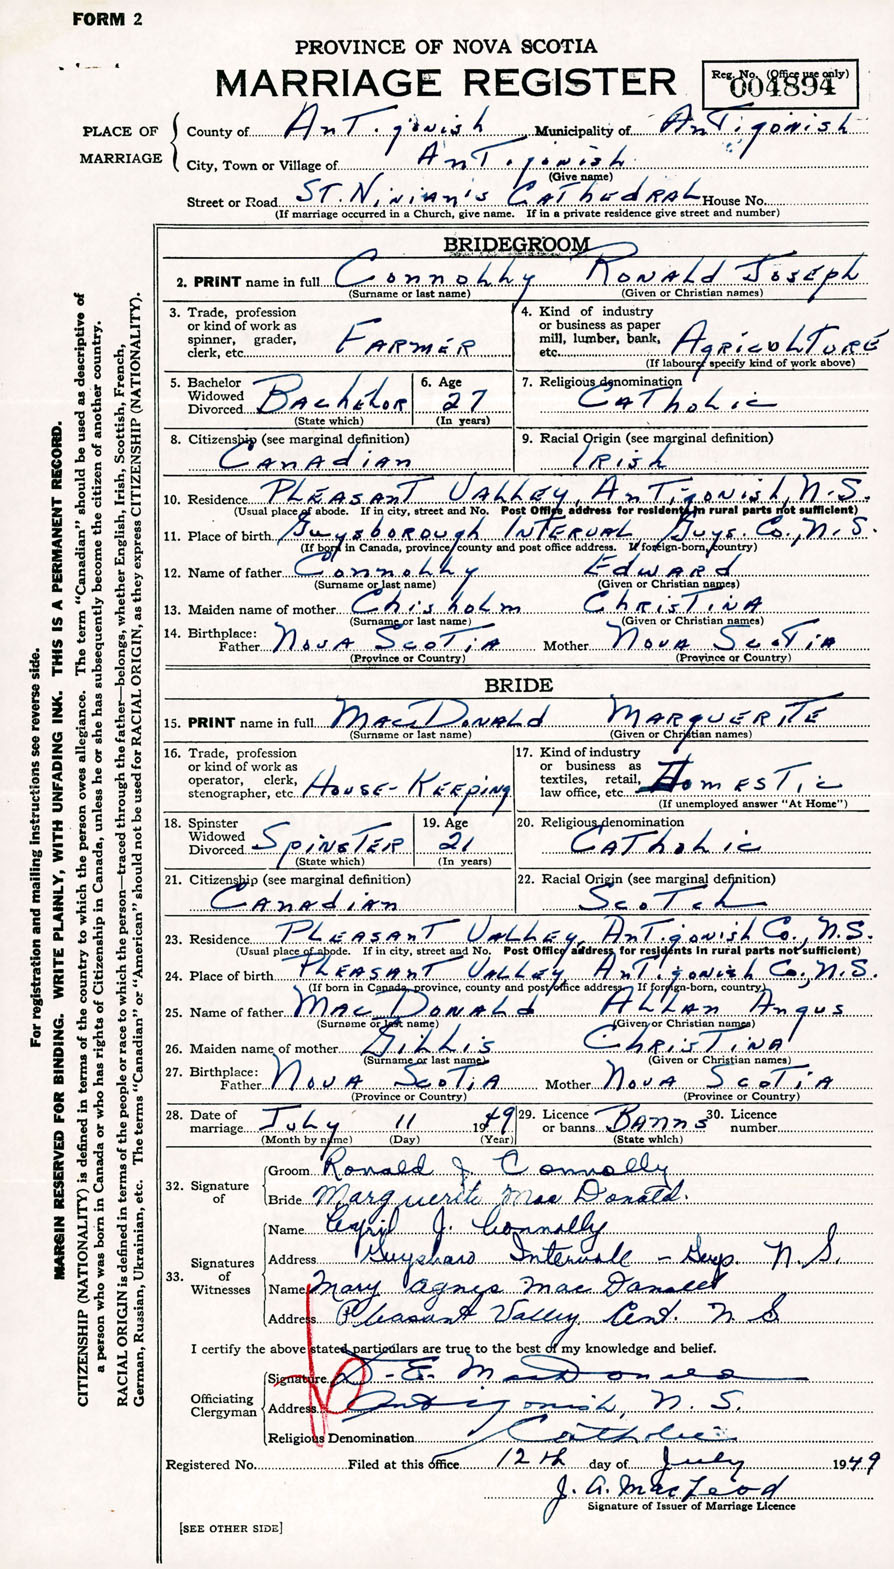 FORM 2
PROVINCE OF NOVA SCOTIA
MARRIAGE REGISTER
Reg. No. (Office use only)
004894
PLACE OF MARRIAGE
County of AnTigonish Municipality of AnTigonish
City, Town or Village of AnTigonish
(Give name)
Street or Road ST. Ninian's CATHEDRAL House No.
(If marriage occurred in a Church, give name. If in a private residence give street and number)
BRIDEGROOM
2. PRINT name in full Connolly RONALD JOSEPH
(Surname or last name) (Given or Christian names)
3. Trade, profession or kind of work as spinner, grader, clerk, etc. FARMER
4. Kind of industry or business as paper mill, lumber, bank, etc. AGRICULTURE
(If labourer specify kind of work above)
5. Bachelor Widowed Divorced BACHELOR
(State which)
6. Age 27
(In years)
7. Religious denomination CATholic
8. Citizenship (see marginal definition) CANADian
9. Racial Origin (see marginal definition) IRish
10. Residence PLEASANT VALLEY, AnTigonish, N.S.
(Usual place of abode. If in city, street and No. Post Office address for residents in rural parts not sufficient)
11. Place of birth Guysborough INTERVAL, Guys. Co., N.S.
(If born in Canada, province, county and post office address. If foreign-born, country)
12. Name of father Connolly EDWARD
(Surname or last name) (Given or Christian names)
13. Maiden name of mother Chisholm CHRISTINA
(Surname or last name) (Given or Christian names)
14. Birthplace: Father NOVA SCOTIA Mother NOVA SCOTIA
(Province or Country) (Province or Country)
BRIDE
15. PRINT name in full MACDONALD MARGUERITE
(Surname or last name) (Given or Christian names)
16. Trade, profession or kind of work as operator, clerk, stenographer, etc. HOUSE-KEEPing
17. Kind of industry or business as textiles, retail, law office, etc. DomESTic
(If unemployed answer "At Home")
18. Spinster Widowed Divorced SPINSTER
(State which)
19. Age 21
(In years)
20. Religious denomination CATholic
21. Citizenship (see marginal definition) CANADian
22. Racial Origin (see marginal definition) SCOTch
23. Residence PLEASANT VALLEY, AnTigonish Co., N.S.
(Usual place of abode. If in city, street and No. Post Office address for residents in rural parts not sufficient)
24. Place of birth PLEASANT VALLEY, AnTigonish Co., N.S.
(If born in Canada, province, county and post office address. If foreign-born, country)
25. Name of father MACDONALD ALLAN Angus
(Surname or last name) (Given or Christian names)
26. Maiden name of mother GILLIS CHRISTINA
(Surname or last name) (Given or Christian names)
27. Birthplace: Father NOVA SCOTIA Mother NOVA SCOTIA
(Province or Country) (Province or Country)
28. Date of marriage July 11 1949
(Month by name) (Day) (Year)
29. Licence or banns BANNS
(State which)
30. Licence number
32. Signature of
Groom Ronald J. Connolly
Bride Marguerite MacDonald.
33. Signatures of Witnesses
Name Cyril J. Connolly
Address Guysboro Intervale - Guys. N.S.
Name Mary Agnes MacDonald
Address Pleasant Valley Ant. N S
I certify the above stated particulars are true to the best of my knowledge and belief.
Officiating Clergyman
Signature D. E. MacDonald
Address Antigonish, N. S.
Religious Denomination Catholic
Registered No. Filed at this office 12th day of July 1949
J. A. MacLeod
Signature of Issuer of Marriage Licence
[SEE OTHER SIDE]
For registration and mailing instructions see reverse side.
MARGIN RESERVED FOR BINDING. WRITE PLAINLY, WITH UNFADING INK. THIS IS A PERMANENT RECORD.
CITIZENSHIP (NATIONALITY) is defined in terms of the country to which the person owes allegiance. The term "Canadian" should be used as descriptive of
a person who was born in Canada or who has rights of Citizenship in Canada, unless he or she has subsequently become the citizen of another country.
RACIAL ORIGIN is defined in terms of the people or race to which the person—traced through the father—belongs, whether English, Irish, Scottish, French,
German, Russian, Ukrainian, etc. The terms "Canadian" or "American" should not be used for RACIAL ORIGIN, as they express CITIZENSHIP (NATIONALITY).